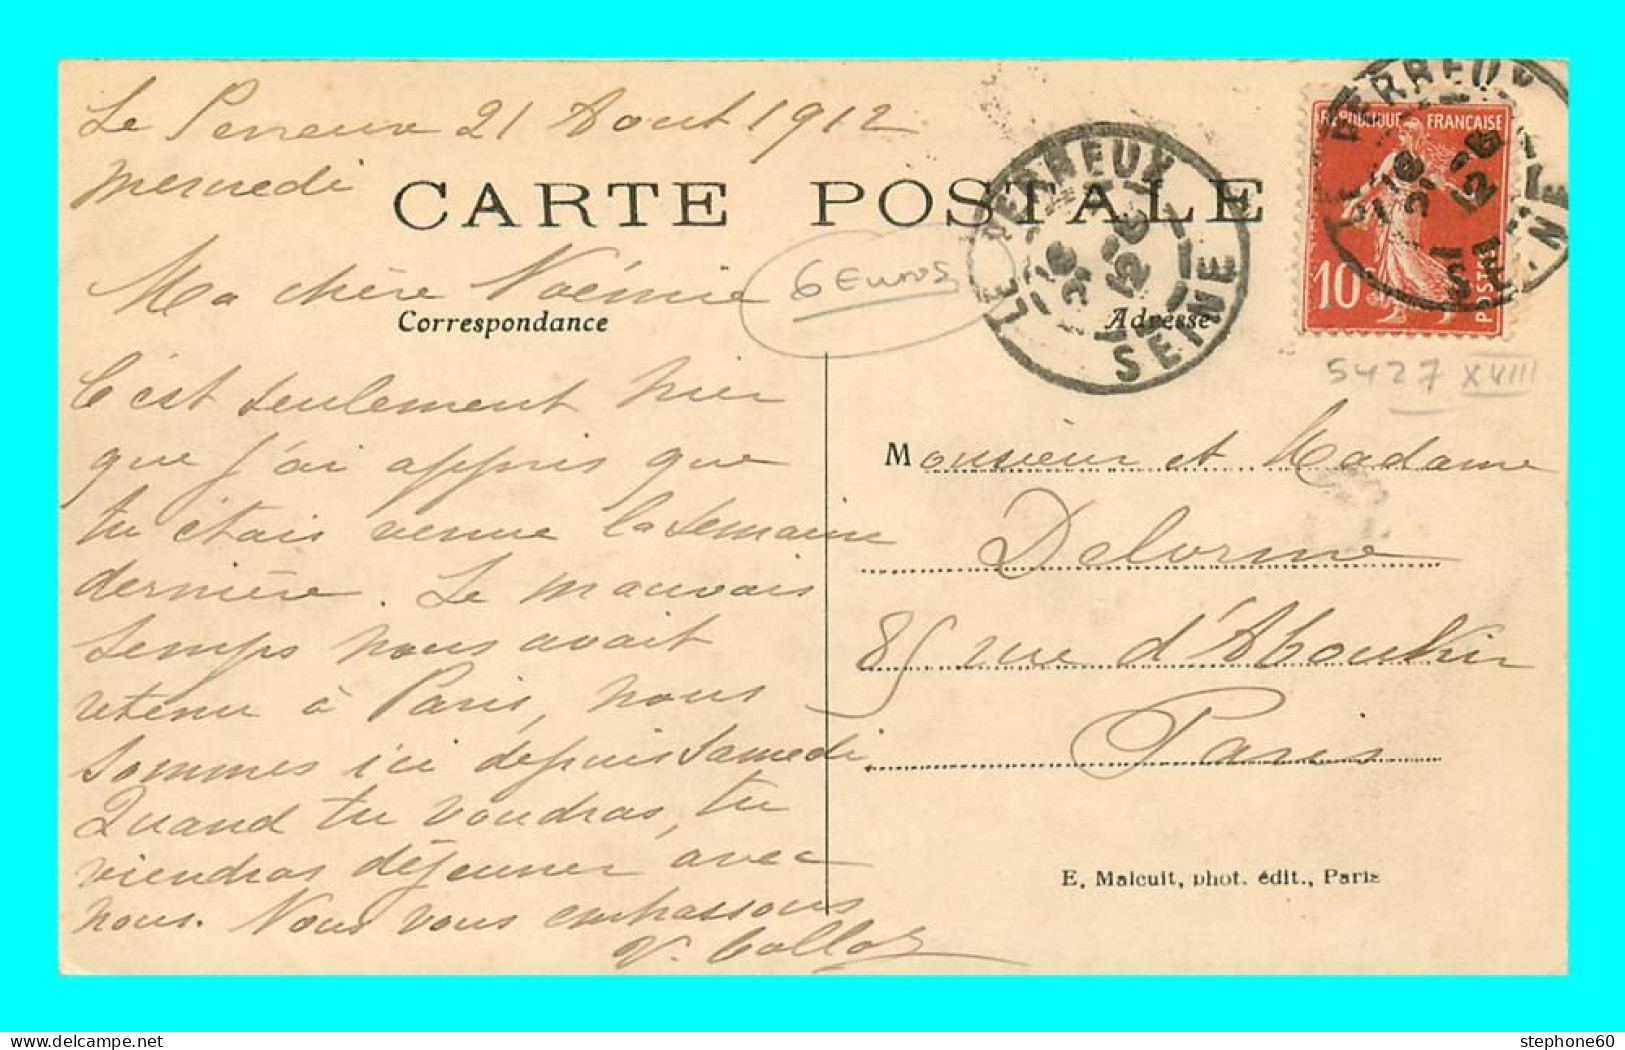 Le Perreux 21 Aout 1912
Mercredi
CARTE POSTALE
Ma chère Noémie
Correspondance
6 Euros
Adresse
LE PERREUX
SEINE
LE PERREUX
SEINE
REPUBLIQUE FRANÇAISE
10
POSTES
5427 XVIII
C'est seulement hier
que j'ai appris que
tu étais venue la semaine
dernière. Le mauvais
temps nous avait
retenu à Paris, nous
sommes ici depuis samedi.
Quand tu voudras, tu
viendras déjeuner avec
nous. Nous vous embrassons
Monsieur et Madame
Delorme
85 rue d'Aboukir
Paris
E. Malcuit, phot. édit., Paris
stephone60